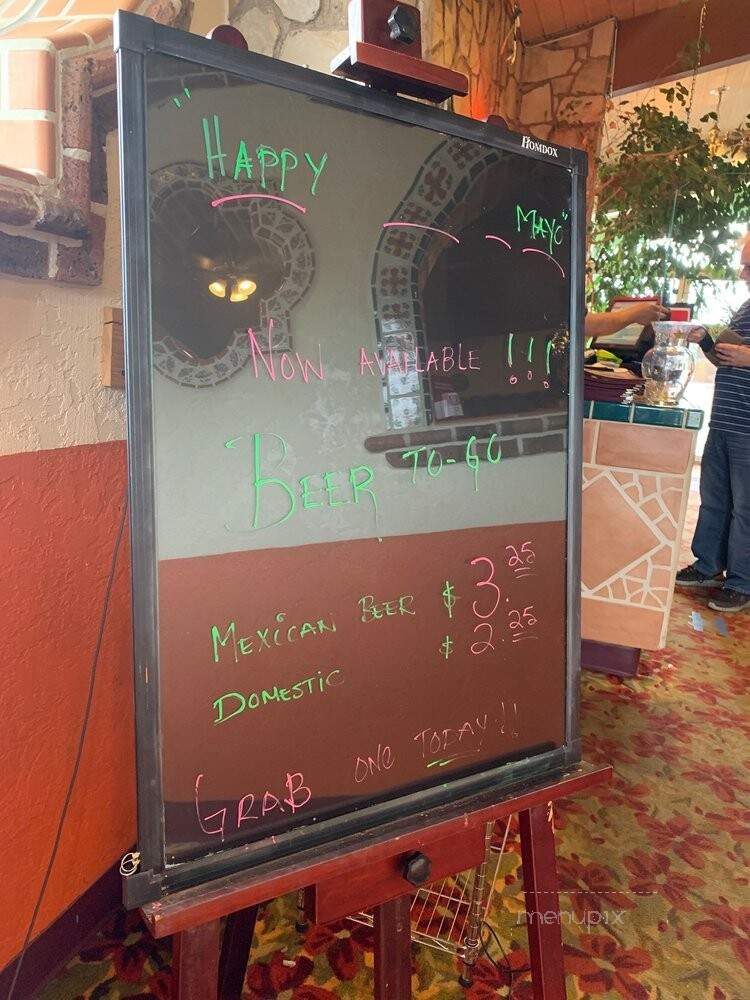 HOMDOX
"HAPPY
MAYO"
NOW AVAILABLE !!!
BEER TO-GO
MEXICAN BEER $ 3.25
DOMESTIC $ 2.25
GRAB ONE TODAY!!
menupix